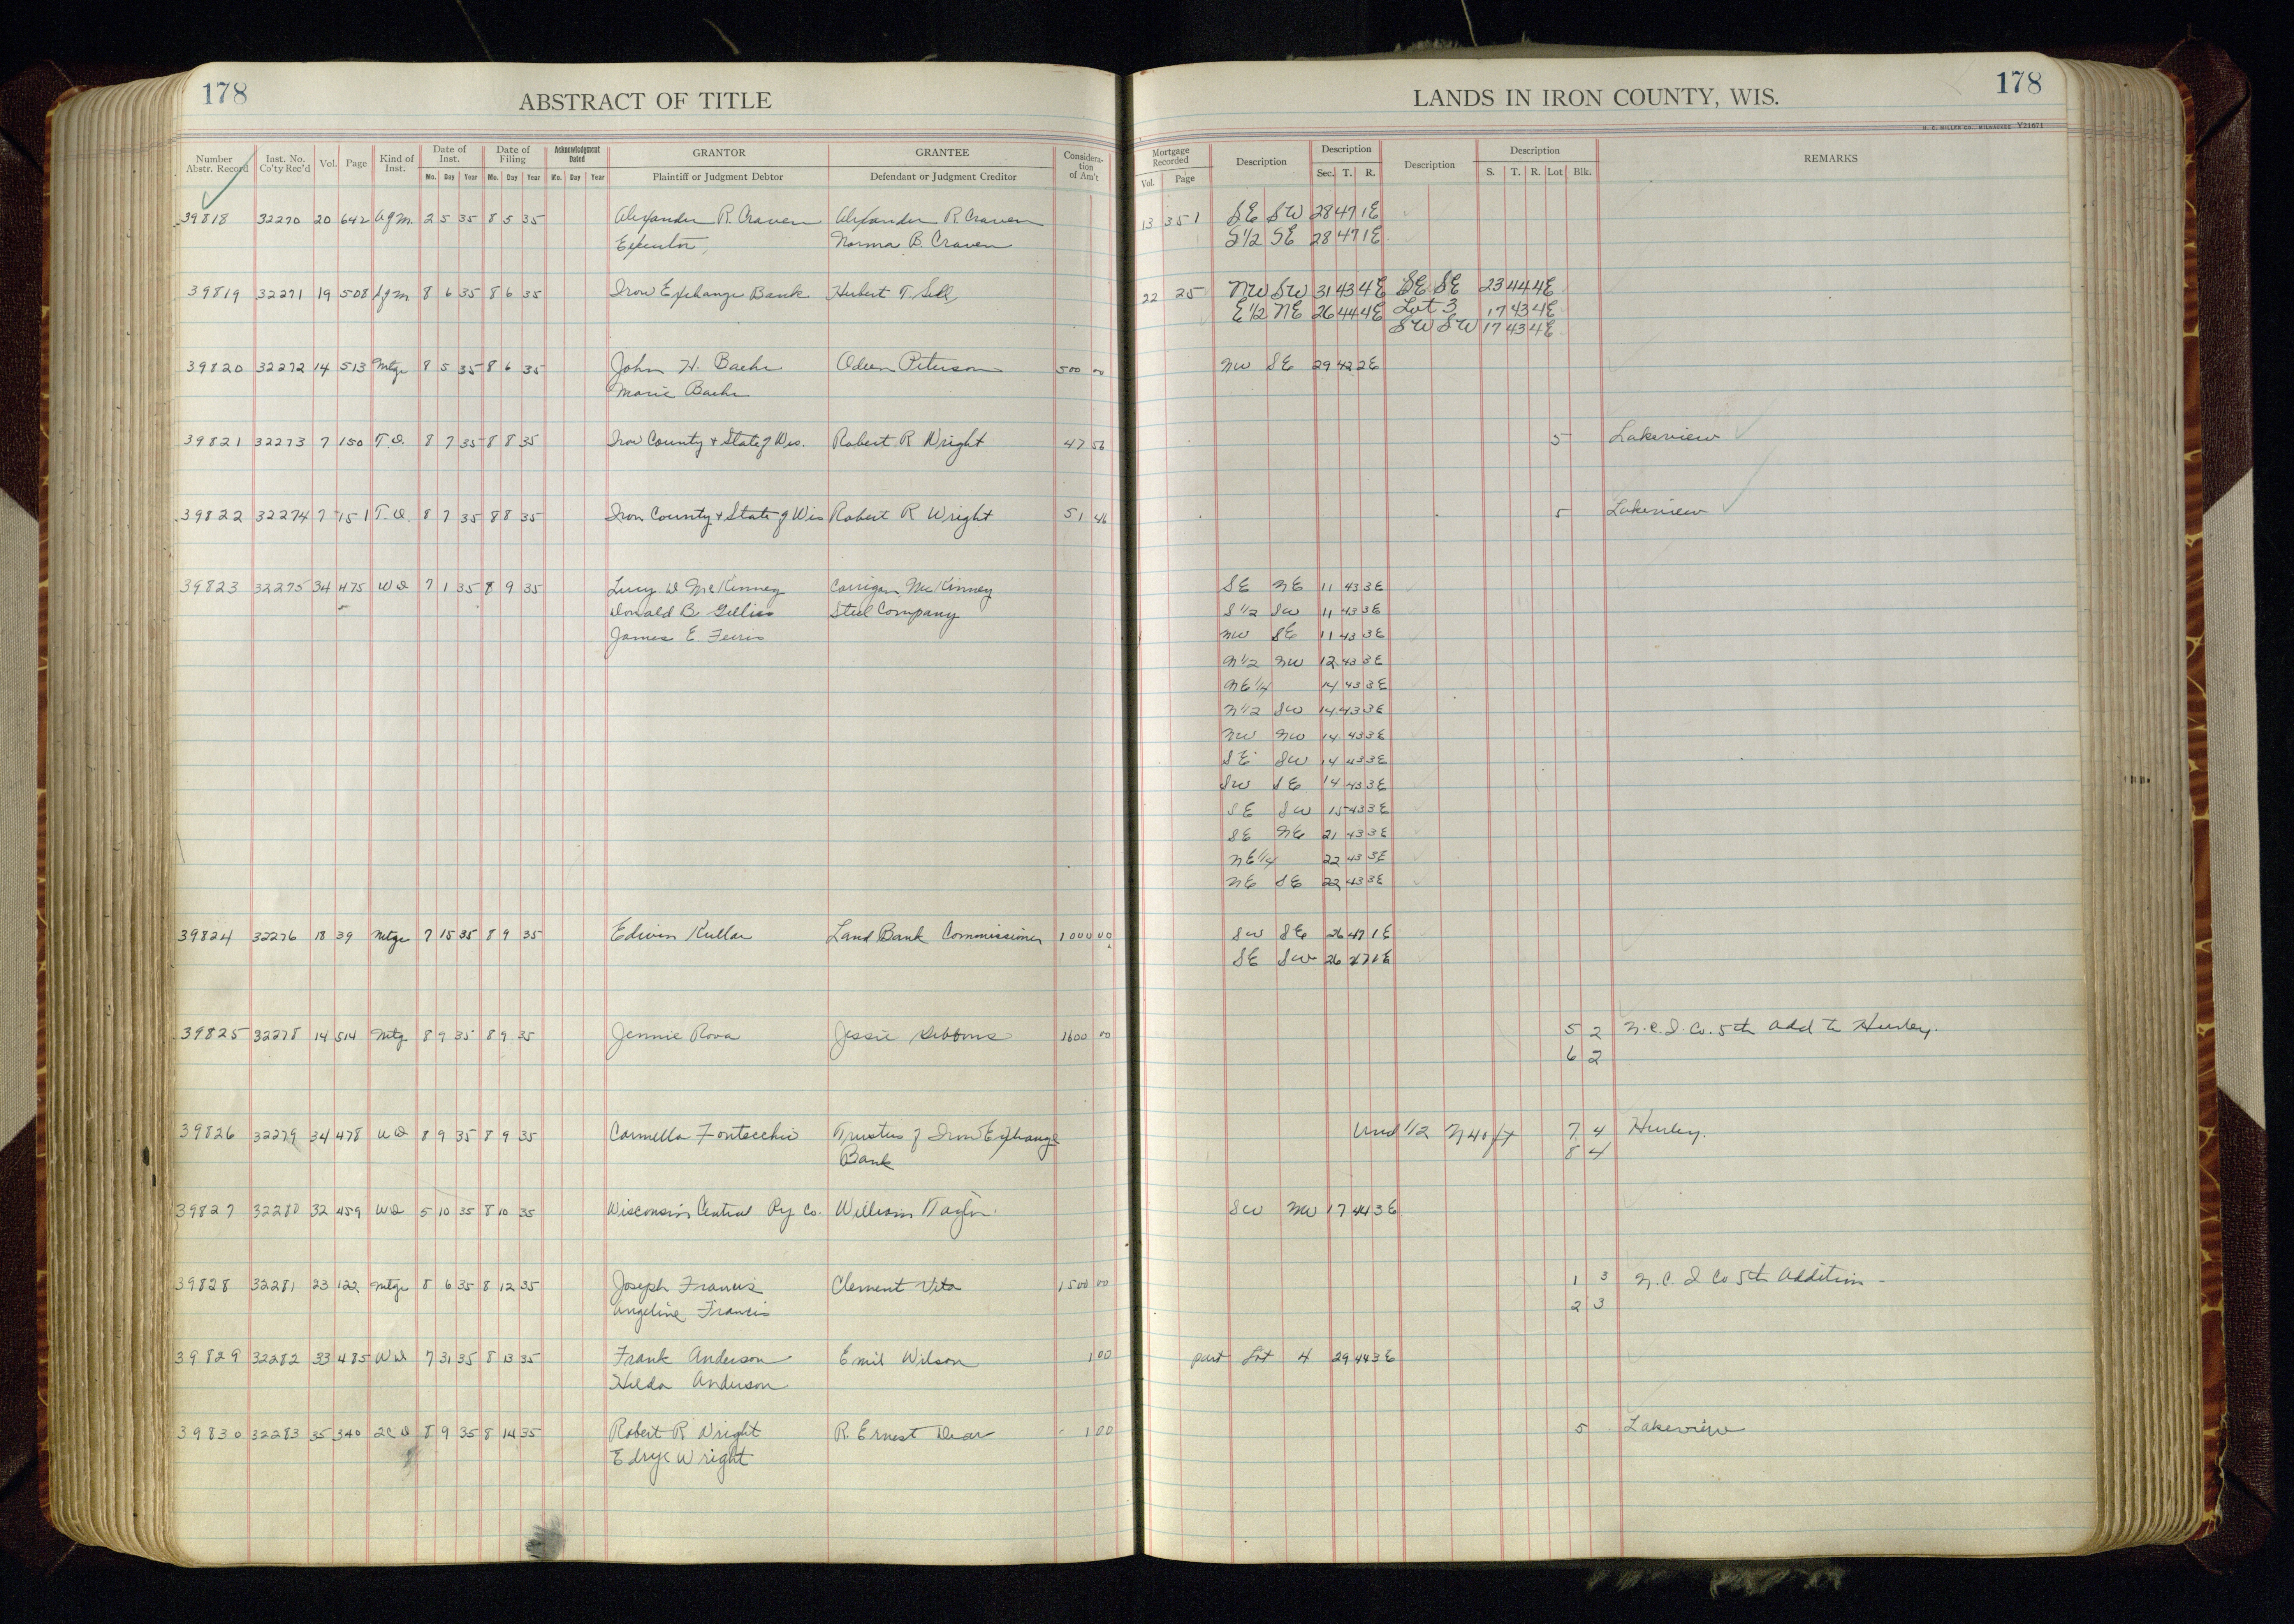 178
ABSTRACT OF TITLE
Number Abstr. Record Inst. No. Co'ty Rec'd Vol. Page Kind of Inst. Date of Inst. Date of Filing Acknowledgment Dated GRANTOR GRANTEE Considera-tion of Am't
Mo. Day Year Mo. Day Year Mo. Day Year Plaintiff or Judgment Debtor Defendant or Judgment Creditor
39818 32270 20 642 Agm. 2 5 35 8 5 35 Alexander R. Craven Alexander R. Craven
Executor, Norma B. Craven
39819 32271 19 508 8 6 35 8 6 35 Iron Exchange Bank Hubert T. Sell
39820 32272 14 513 Mtge 8 5 35 8 6 35 John H. Baehr Odeen Peterson 500 00
Marie Baehr
39821 32273 7 150 T.D. 8 7 35 8 8 35 Iron County & State of Wis. Robert R Wright 47 56
39822 32274 7 151 T.D. 8 7 35 8 8 35 Iron County & State of Wis Robert R Wright 51 46
39823 32275 34 475 WD 7 1 35 8 9 35 Lucy D McKinney Corrigan McKinney
Donald B Gilliss Steel Company
James E. Ferris
39824 32276 18 39 Mtge 7 15 35 8 9 35 Edwin Kullar Land Bank Commissioner 1000 00
39825 32278 14 514 Mtg 8 9 35 8 9 35 Jennie Rova Jessie Gibbons 1600 00
39826 32279 34 478 WD 8 9 35 8 9 35 Carmella Fontecchio Trustees of Iron Exchange
Bank
39827 32280 32 459 WD 5 10 35 8 10 35 Wisconsin Central Ry Co. William Taylor.
39828 32281 23 122 Mtge 8 6 35 8 12 35 Joseph Francis Clement Vita 1500 00
Angeline Francis
39829 32282 33 485 WD 7 31 35 8 13 35 Frank Anderson Emil Wilson 1 00
Hilda Anderson
39830 32283 35 340 QCD 8 9 35 8 14 35 Robert R Wright R. Ernest Dear 1 00
Edryc Wright
178
LANDS IN IRON COUNTY, WIS.
H. C. MILLER CO., MILWAUKEE Y21671
Mortgage Recorded Description Description Description Description REMARKS
Vol. Page Sec. T. R. S. T. R. Lot Blk.
13 351 SE SW 28 47 1E
S1/2 SE 28 47 1E
22 25 NW SW 31 43 4E SE SE 23 44 4E
E1/2 NE 26 44 4E Lot 3 17 43 4E
SW SW 17 43 4E
NW SE 29 42 2E
5 Lakeview
5 Lakeview
SE NE 11 43 3E
S1/2 SW 11 43 3E
NW SE 11 43 3E
N1/2 NW 12 43 3E
NE1/4 14 43 3E
N1/2 SW 14 43 3E
NW NW 14 43 3E
SE SW 14 43 3E
SW SE 14 43 3E
SE SW 15 43 3E
SE NE 21 43 3E
NE1/4 22 43 3E
NE SE 22 43 3E
SW SE 26 47 1E
SE SW 26 47 1E
5 2 N.C.I. Co. 5th Add to Hurley.
6 2
Und 1/2 N 40 ft 7 4 Hurley.
8 4
SW NW 17 44 3E
1 3 N.C.I Co 5th Addition -
2 3
part Lot 4 29 44 3E
5 Lakeview